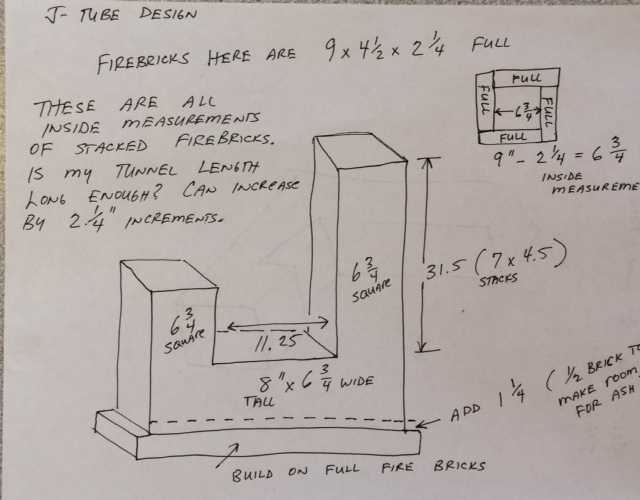 J-TUBE DESIGN
FIREBRICKS HERE ARE 9 x 4 1/2 x 2 1/4 FULL
THESE ARE ALL
INSIDE MEASUREMENTS
OF STACKED FIREBRICKS.
IS MY TUNNEL LENGTH
LONG ENOUGH? CAN INCREASE
BY 2 1/4" INCREMENTS.
FULL
FULL
6 3/4
FULL
FULL
9" - 2 1/4 = 6 3/4
INSIDE
MEASUREME
6 3/4
SQUARE
31.5 (7 x 4.5)
STACKS
6 3/4
SQUARE
11.25
8" x 6 3/4 WIDE
TALL
ADD 1 1/4 (1/2 BRICK TO
MAKE ROOM
FOR ASH
BUILD ON FULL FIRE BRICKS